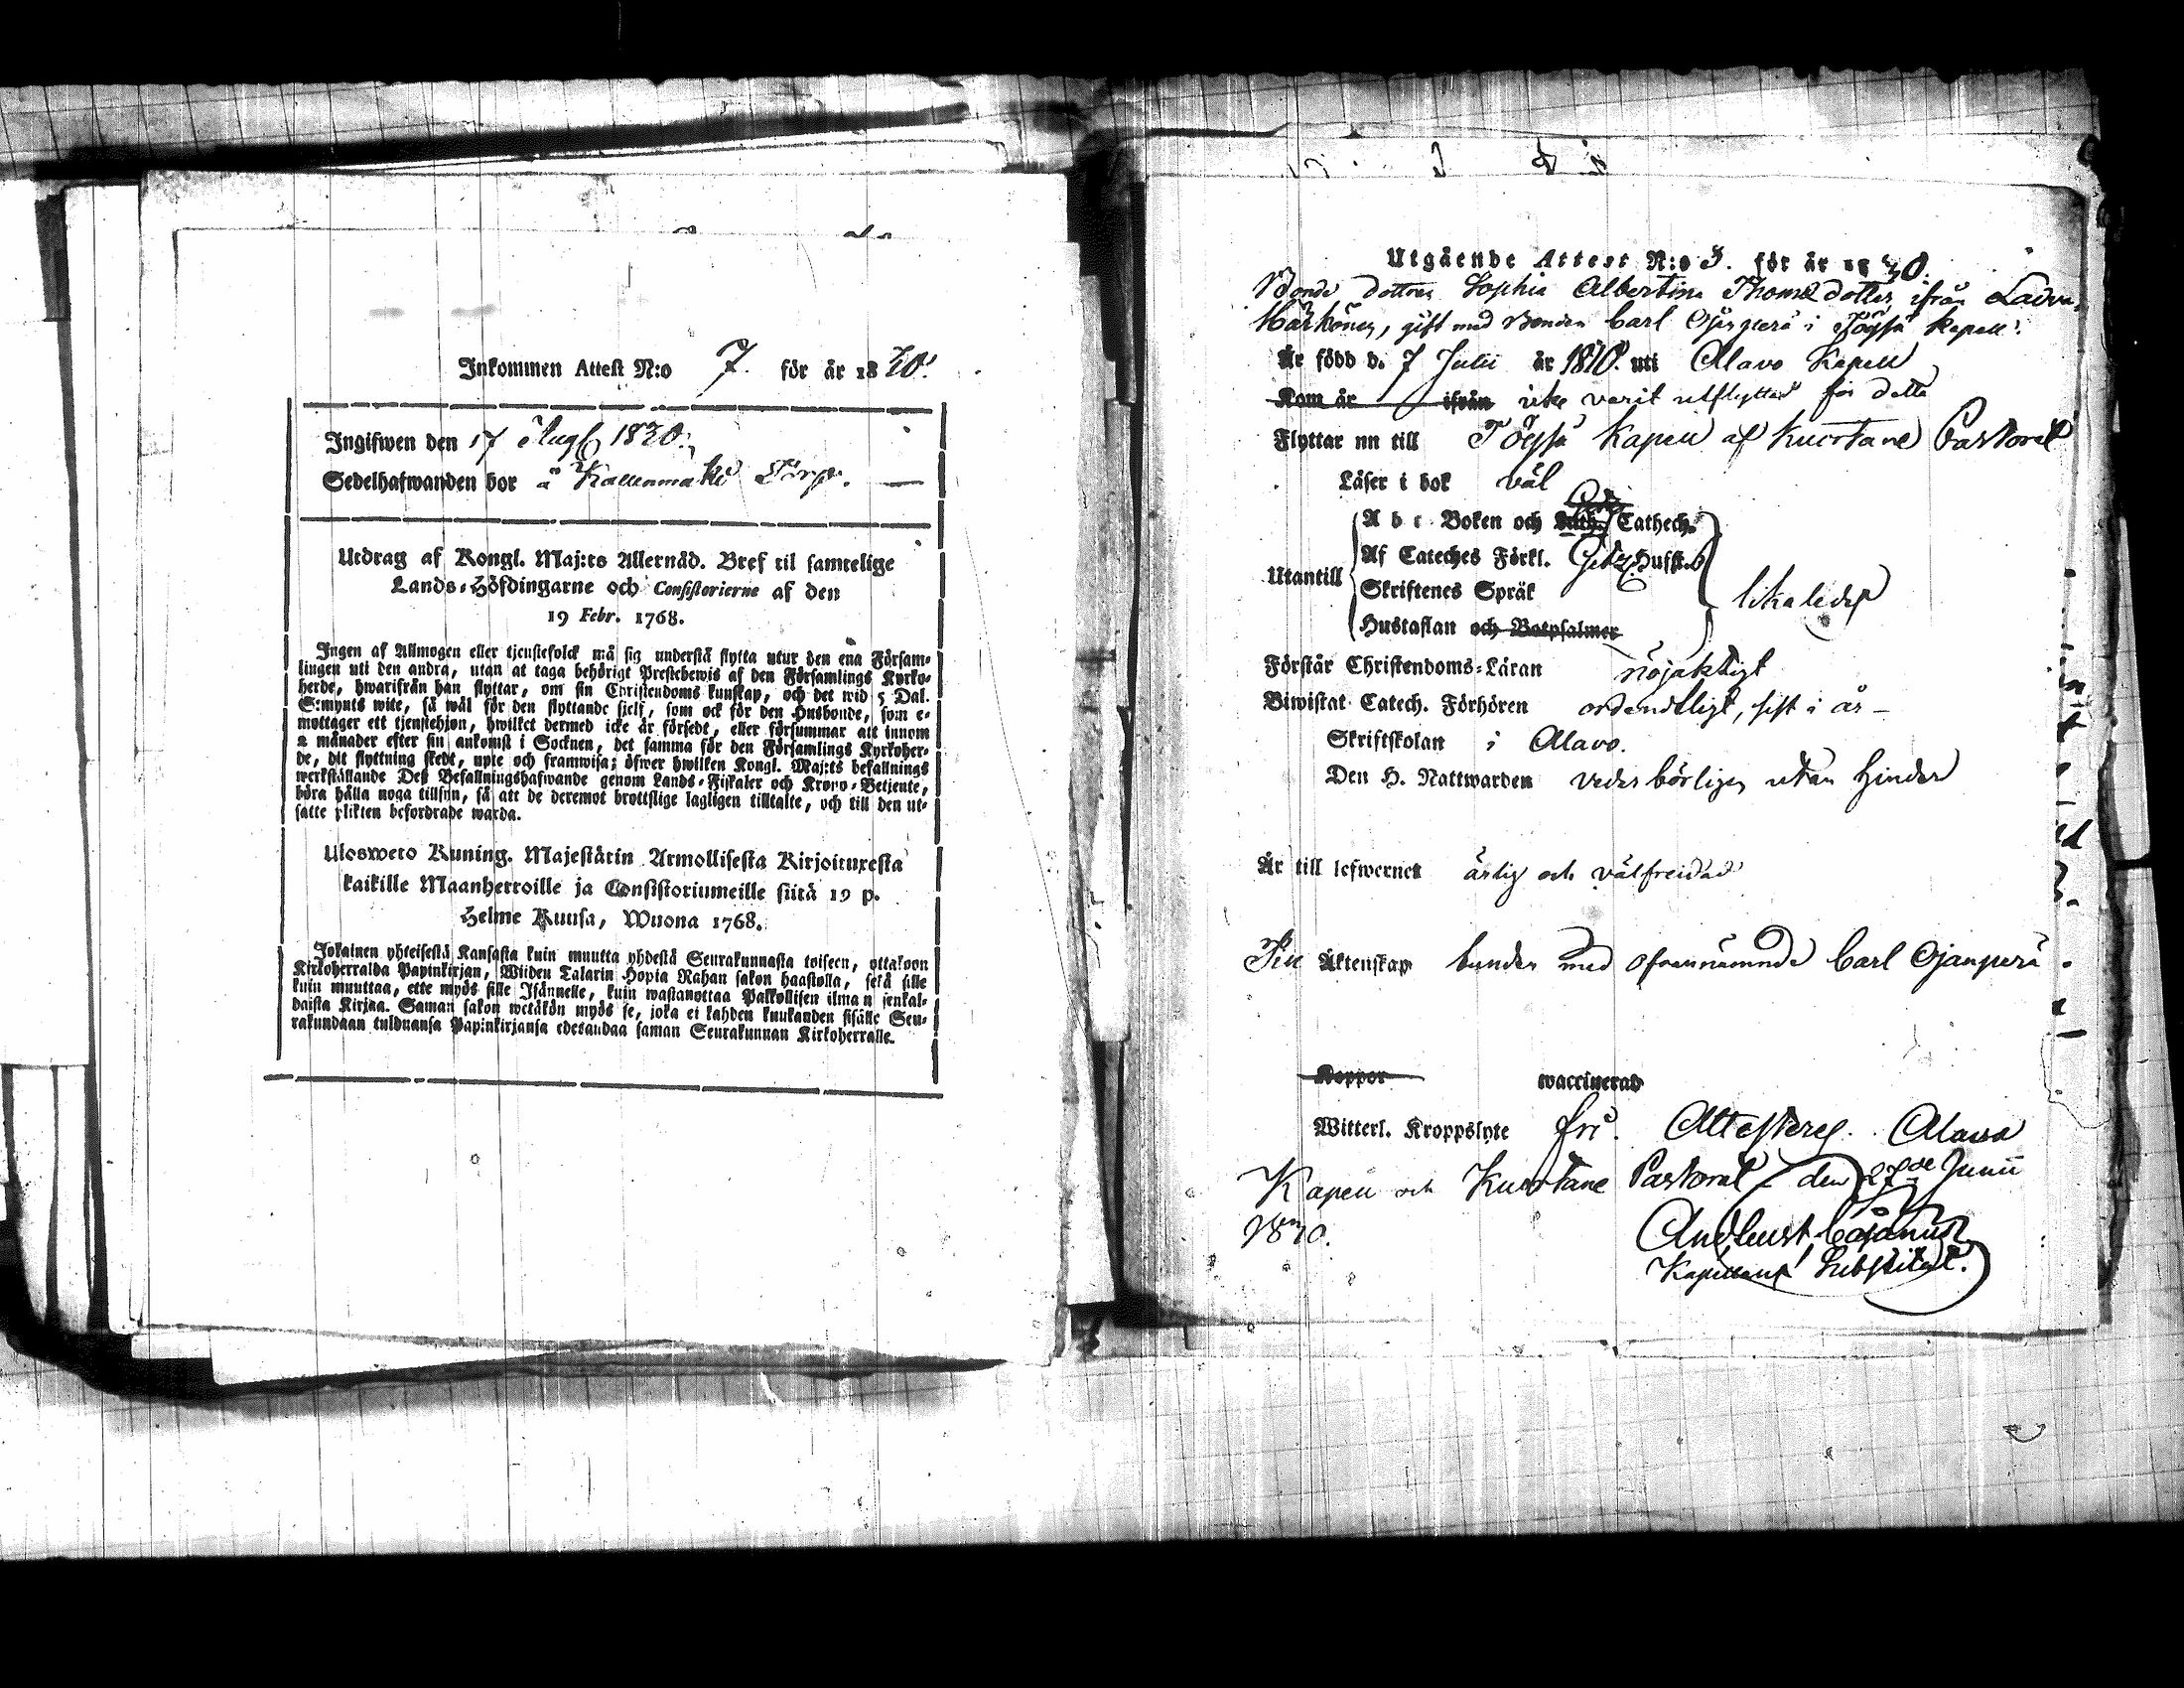 Inkommen Attest N:o 7. för år 1830.
Ingifwen den 17 Aug 1830.
Sedelhafwanden bor å Kallenmäki Torp.
Utdrag af Kongl. Maj:ts Allernåd. Bref til samtelige
Lands-Höfdingarne och Consistorierne af den
19 Febr. 1768.
Ingen af Allmogen eller tjenstefolck må sig understå flytta utur den ena Försam-
lingen uti den andra, utan at taga behörigt Prestebewis af den Församlings Kyrko-
herde, hwarifrån han flyttar, om sin Christendoms kunskap, och det wid 5 Dal.
S:mynts wite, så wäl för den flyttande sielf, som ock för den Husbonde, som e-
mottager ett tjenstehjon, hwilket dermed icke är försedt, eller försummar att innom
2 månader efter sin ankomst i Socknen, det samma för den Församlings Kyrkoher-
de, dit flyttning skedt, upte och framwisa; öfwer hwilken Kongl. Maj:ts befallnings
werkställande Deß Befallningshafwande genom Lands-Fiskaler och Krono-Betjente,
böra hålla noga tillsyn, så att de deremot brottslige lagligen tilltalte, och till den ut-
satte plikten befordrade warda.
Ulosweto Kuning. Majestätin Armollisesta Kirjoituxesta
kaikille Maanherroille ja Consistoriumeille siitä 19 p.
Helme Kuusa, Wuona 1768.
Jokainen yhteisestä Kansasta kuin muutta yhdestä Seurakunnasta toiseen, ottakoon
Kirkoherralda Papinkirjan, Wiiden Talarin Hopia Rahan sakon haastolla, sekä sille
kuin muuttaa, ette myös sille Isännelle, kuin wastanottaa Palkollisen ilman senkal-
daista Kirjaa. Saman sakon wetäkön myös se, joka ei kahden kuukauden sisälle Seu-
rakundaan tulduansa Papinkirjansa edesandaa saman Seurakunnan Kirkoherralle.
Utgående Attest N:o 3. för år 1830.
Bonde dottren Sophia Albertina Thomædotter ifrån
Härkönen, gift med Bonden Carl Ojanperä i Töysä Kapell.
Är född d. 7 Julii år 1810. uti Alavo Kapell
Kom år ifrån icke varit utflyttad för detta
Flyttar nu till Töysä Kapell af Kuortane Pastorat
Läser i bok väl
Utantill
A b c Boken och Luth. Cathech.
Af Cateches Förkl. Hufst.
Skriftenes Språk
Hustaflan och Botpsalmer
likaledes
Förstår Christendoms-Läran nöjaktigt
Biwistat Catech. Förhören ordentligt, sist i år
Skriftskolan i Alavo.
Den H. Nattwarden vederbörligen utan hinder
Är till lefwernet ärlig och välfreidad
Till Äktenskap bunden med ofvannämnde Carl Ojanperä.
Koppor waccinerad
Witterl. Kroppslyte fri. Attesteres. Alavo
Kapell och Kuortane Pastorat den 27de Junii
1830.
Cajanus
Kapellans Substitut.